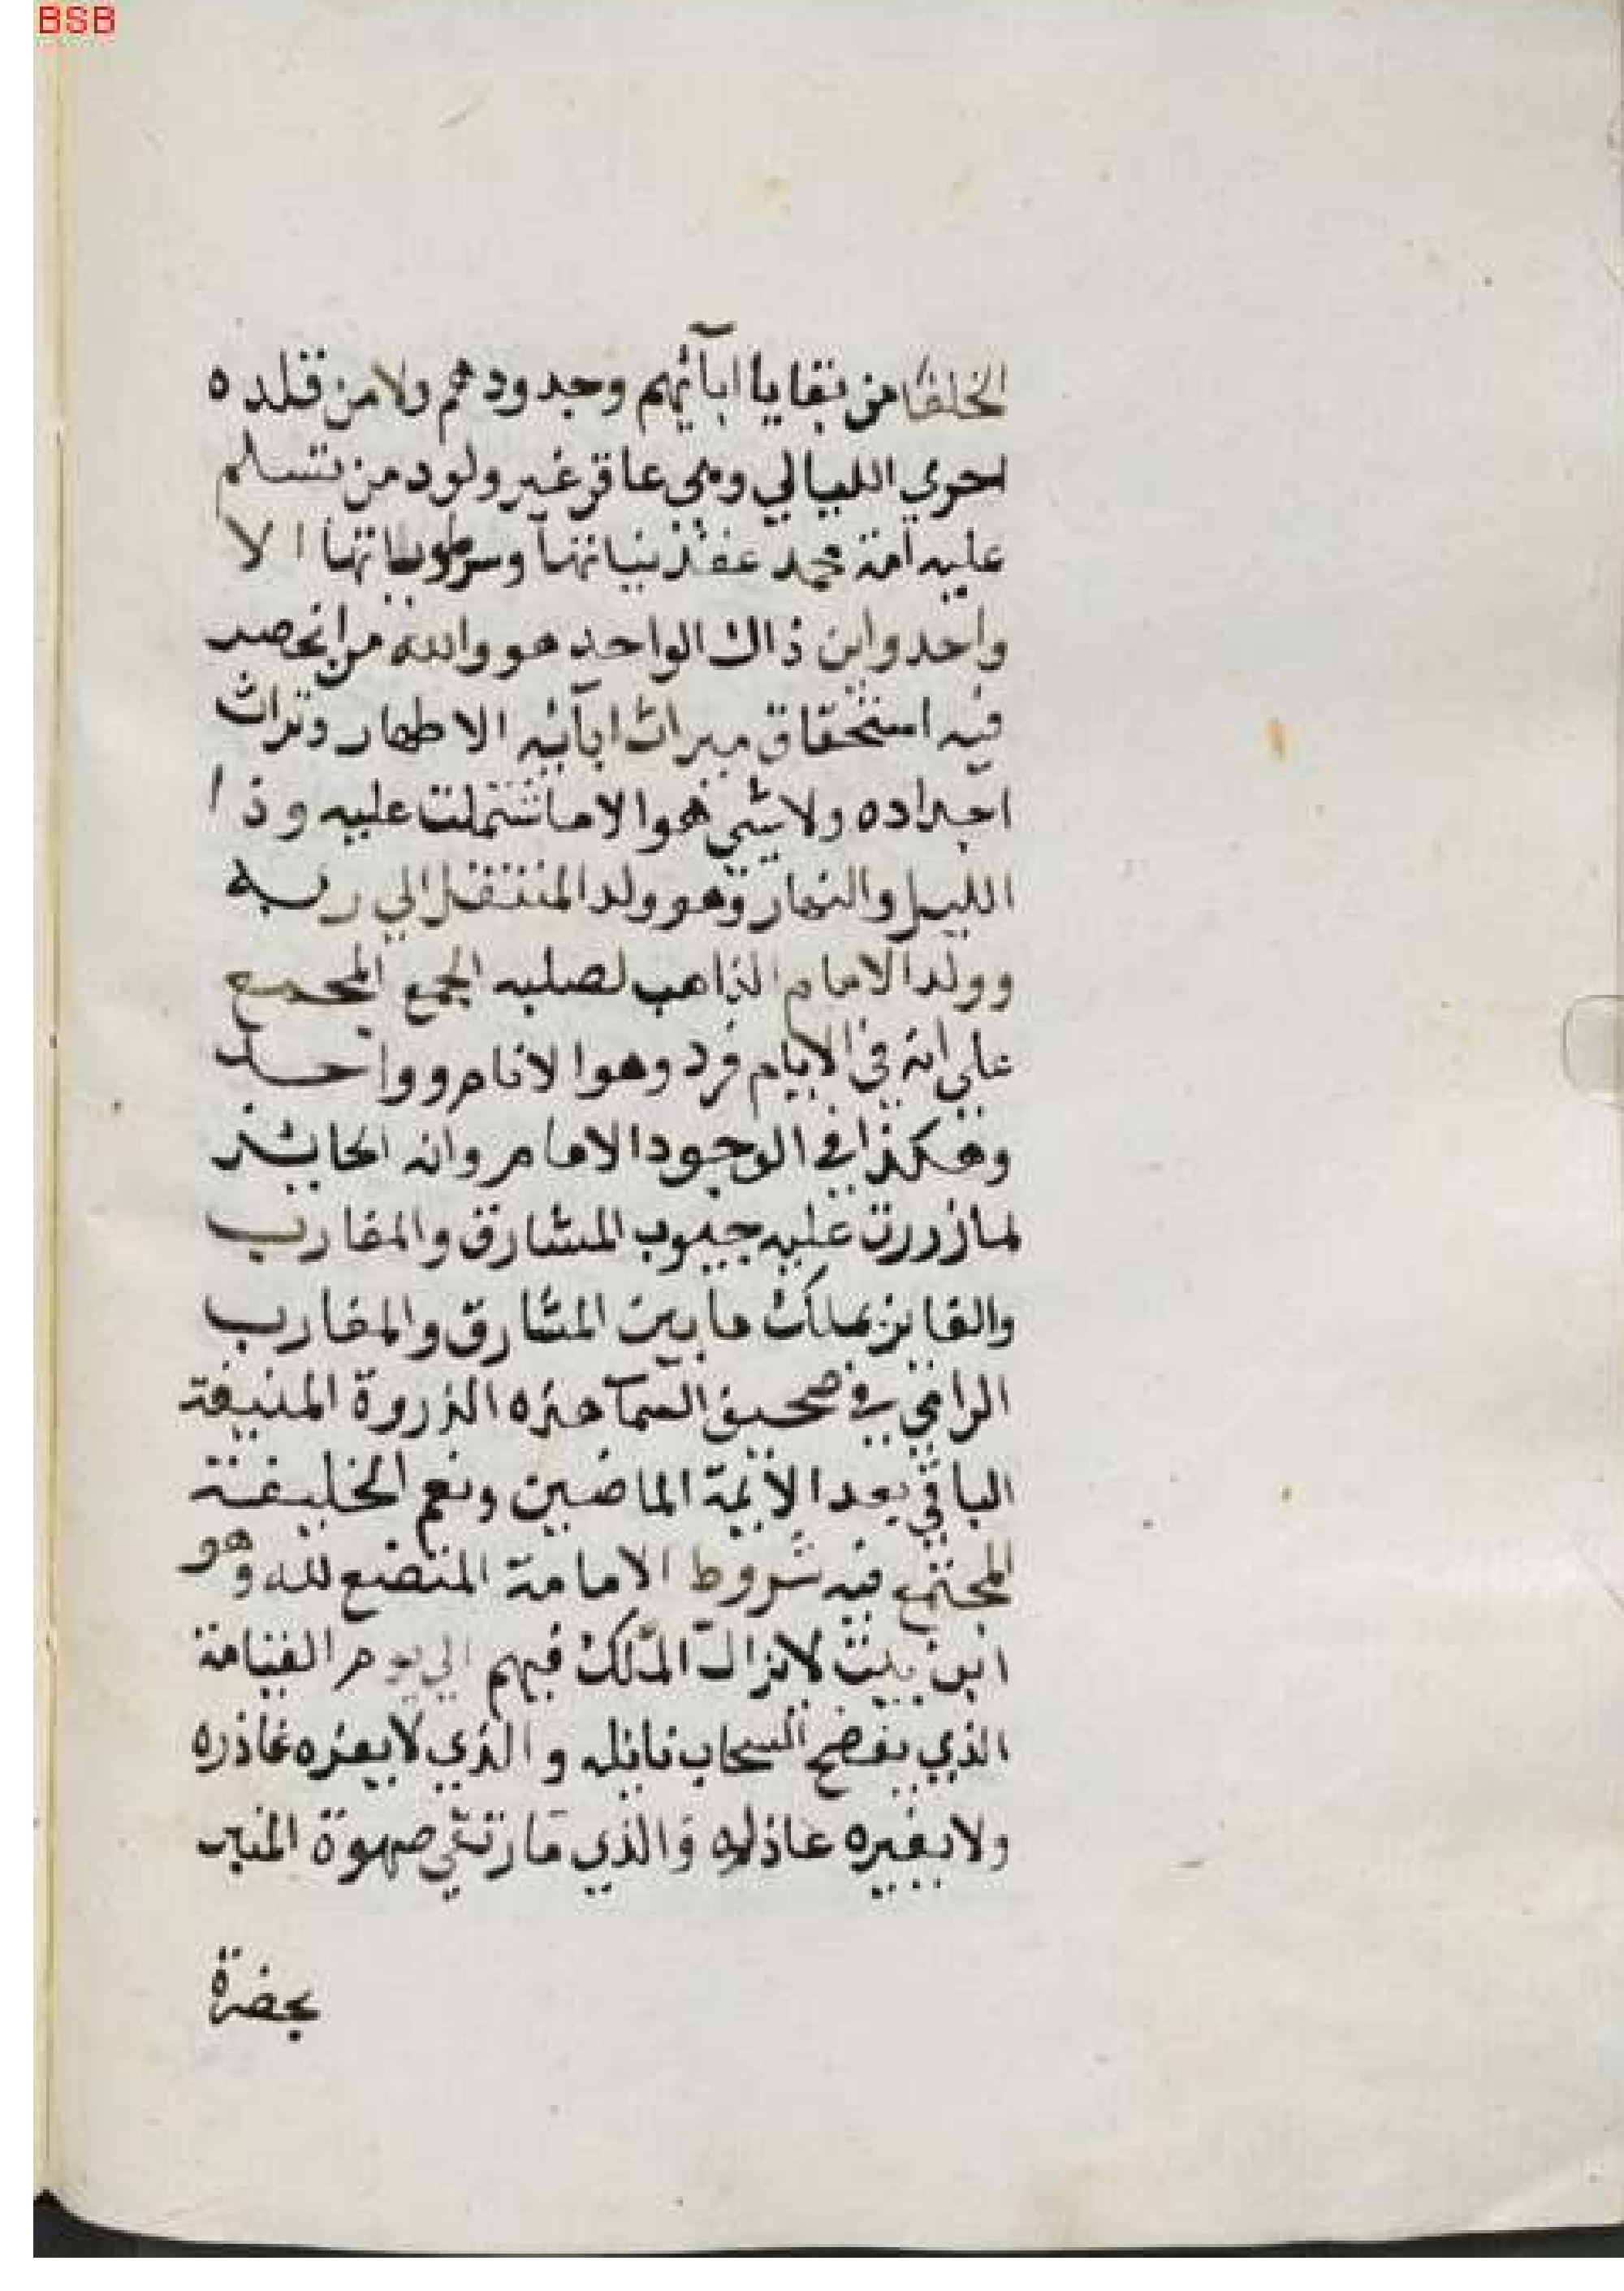 BSB
الخلفا من بقايا ابآئهم وجدودهم ولا من قلده
احري الليالي وهي عاقر غير ولود من تسلم
عليه امة محمد عقد بنيانتها الا
واحد واين ذاك الواحد هو والله من انحصر
فيه استحقاق ميراث ابآئه الاطهار وتراث
اجداده ولا شي هوا الا ما اشتملت عليه وذا
الليل والنهار وهو ولد المنتقل الي ربه
وولد الامام الذاهب لصلبه المجمع
علي انه في الايام فرد وهوا الانام وواحد
وهكذا في الوجود الامام وانه الحايز
لما زررت عليه جيوب المشارق والمغارب
والفايز بملك ما بين المشارق والمغارب
الراقي في صحيف السما هذه الذروة المنيفة
الباقي بعد الائمة الماضين ونعم الخليفة
المجتمع فيه شروط الامامة المتضع لله وهو
ابن بيت لا نزال الملك فيهم الي يوم القيامة
الذي يفضح السحاب نايله والذي لا يعزه عاذره
ولا يغيره عاذله والذي ما رتقي صهوة المنبر
بحضرة